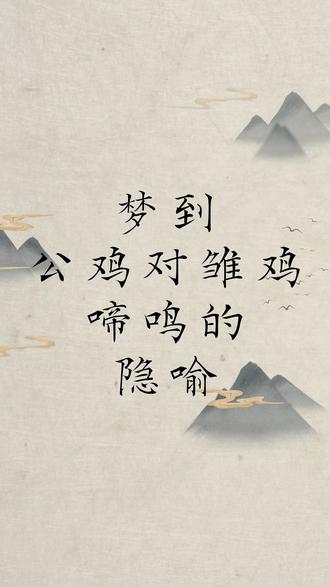 梦到
公鸡对雏鸡
啼鸣的
隐喻